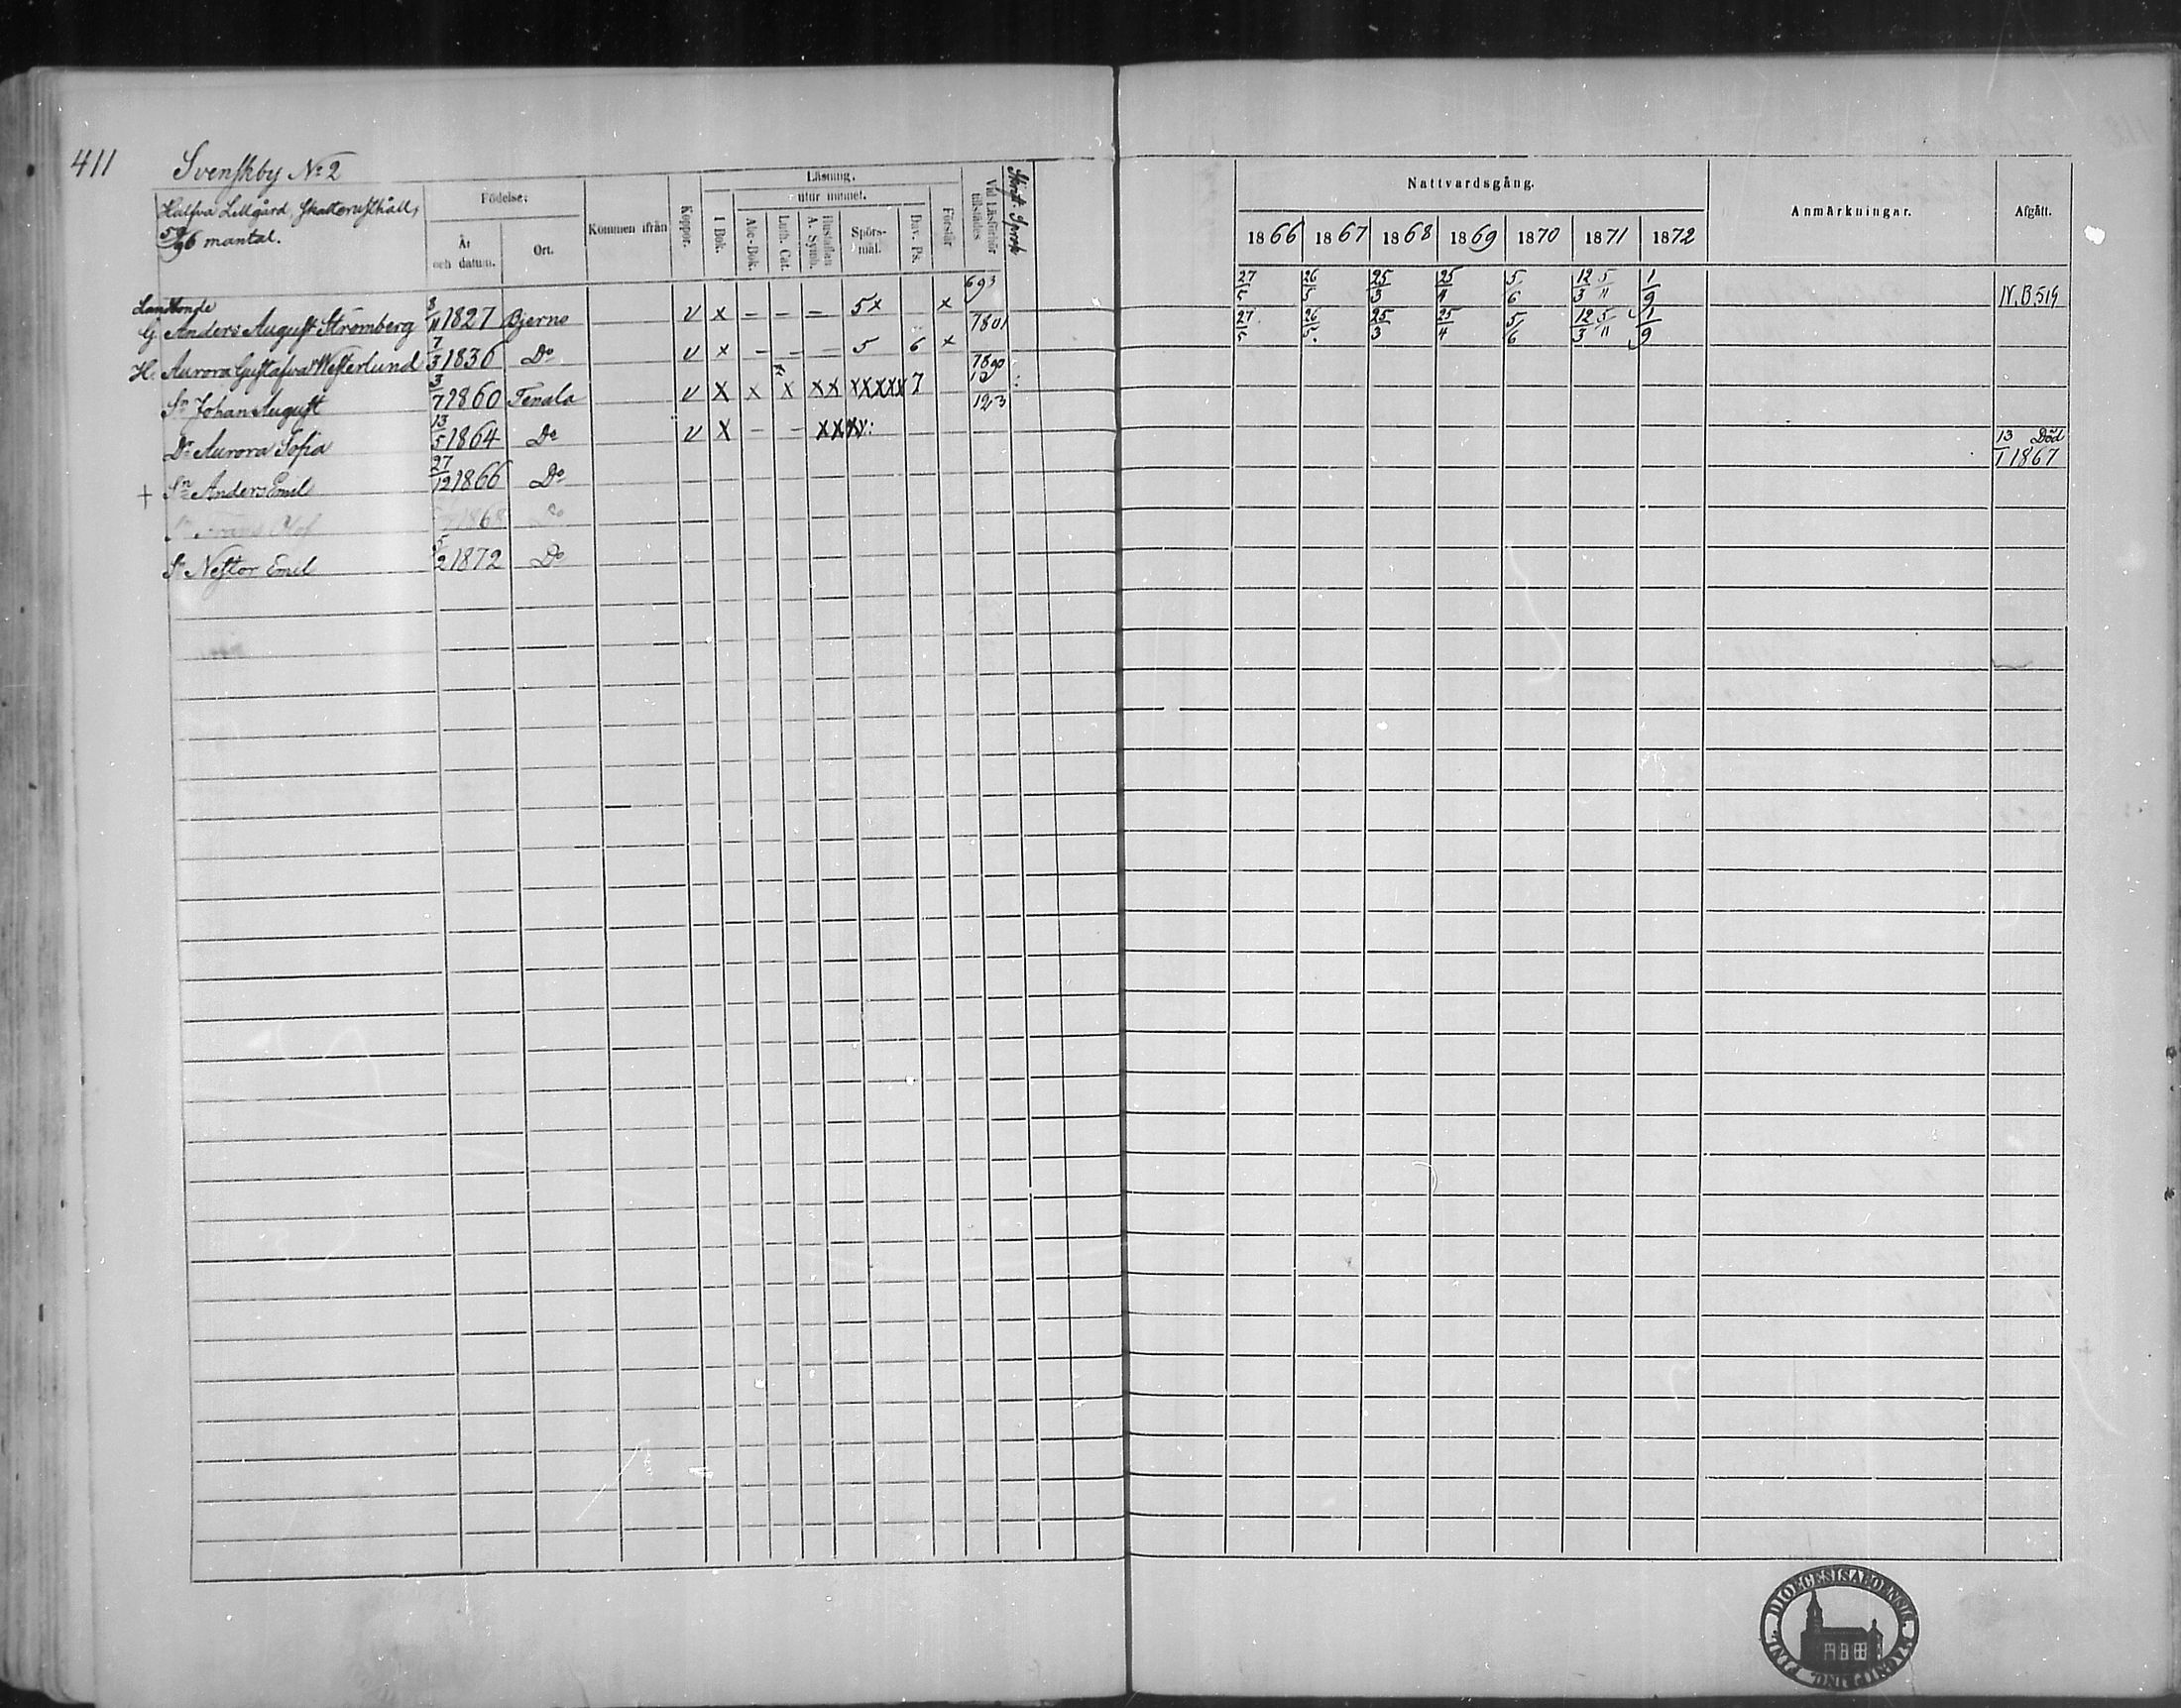 411
Svenskby No 2
Halfva Lillgård, Skatterusthåll,
59/96 mantal.
Födelse:
År och datum.
Ort.
Kommen ifrån
Koppor.
Läsning.
I Bok.
utur minnet.
Abc-Bok.
Luth. Cat.
Hustaflan A. Symb.
Spörsmål.
Dav. Ps.
Förstår
Vid Läsförhör tillstädes
Skrift. Språk
Nattvardsgång.
1866 1867 1868 1869 1870 1871 1872
Anmärkningar.
Afgått.
Landbonde
G. Anders August Strömberg 8/11 1827 Bjerno v x – – – 5x x 693 27/5 26/5 25/3 25/4 5/6 12/3 5/11 1/9 N.B 519
H. Aurora Gustafva Westerlund 7/3 1836 Do v x – – – 5 6 x 7801 27/5 26/5. 25/3 25/4 5/6 12/3 5/11 1/9
Sn Johan August 3/7 1860 Tenala v x x x xx xxxxx 7 7890
Dr Aurora Sofia 13/5 1864 Do v x – – xxxx: 123
† Sn Anders Emil 27/12 1866 Do 13/1 1867 Död
Sn Frans Olof 1868 Do
Sn Nestor Emil 5/2 1872 Do
DIOECESIS ABOENSIS